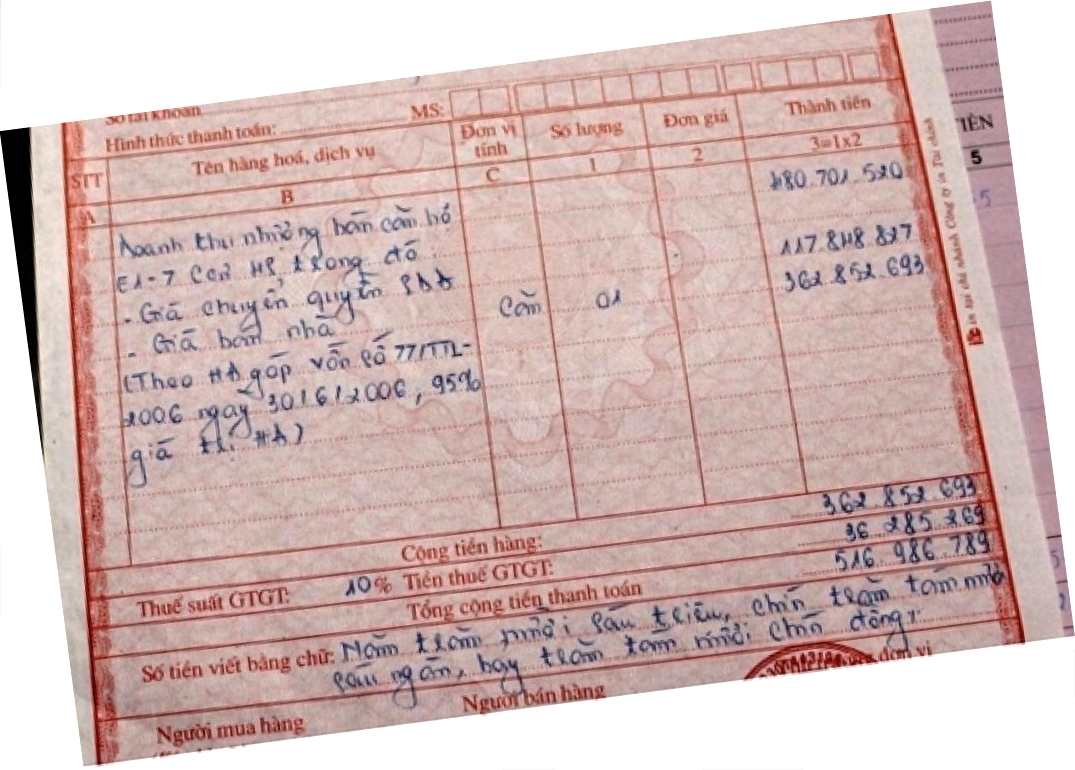 Số tài khoản
Hình thức thanh toán: MS:
STT Tên hàng hoá, dịch vụ Đơn vị tính Số lượng Đơn giá Thành tiền
A B C 1 2 3=1x2
Doanh thu nhượng bán căn hộ 480.701.520
E1-7 CC2 trong đó
- Giá chuyển quyền SDĐ 117.848.827
- Giá bán nhà Căn 01 362.852.693
(Theo HĐ góp vốn số 77/TTL-
2006 ngày 30/6/2006, 95%
giá trị HĐ)
Cộng tiền hàng: 362.852.693
Thuế suất GTGT: 10% Tiền thuế GTGT: 36.285.269
Tổng cộng tiền thanh toán 516.986.789
Số tiền viết bằng chữ: Năm trăm mười sáu triệu, chín trăm tám mươi
sáu ngàn, bảy trăm tám mươi chín đồng
Người mua hàng Người bán hàng đơn vị
in tại chi nhánh Công ty in Tài chính
TIỀN
5